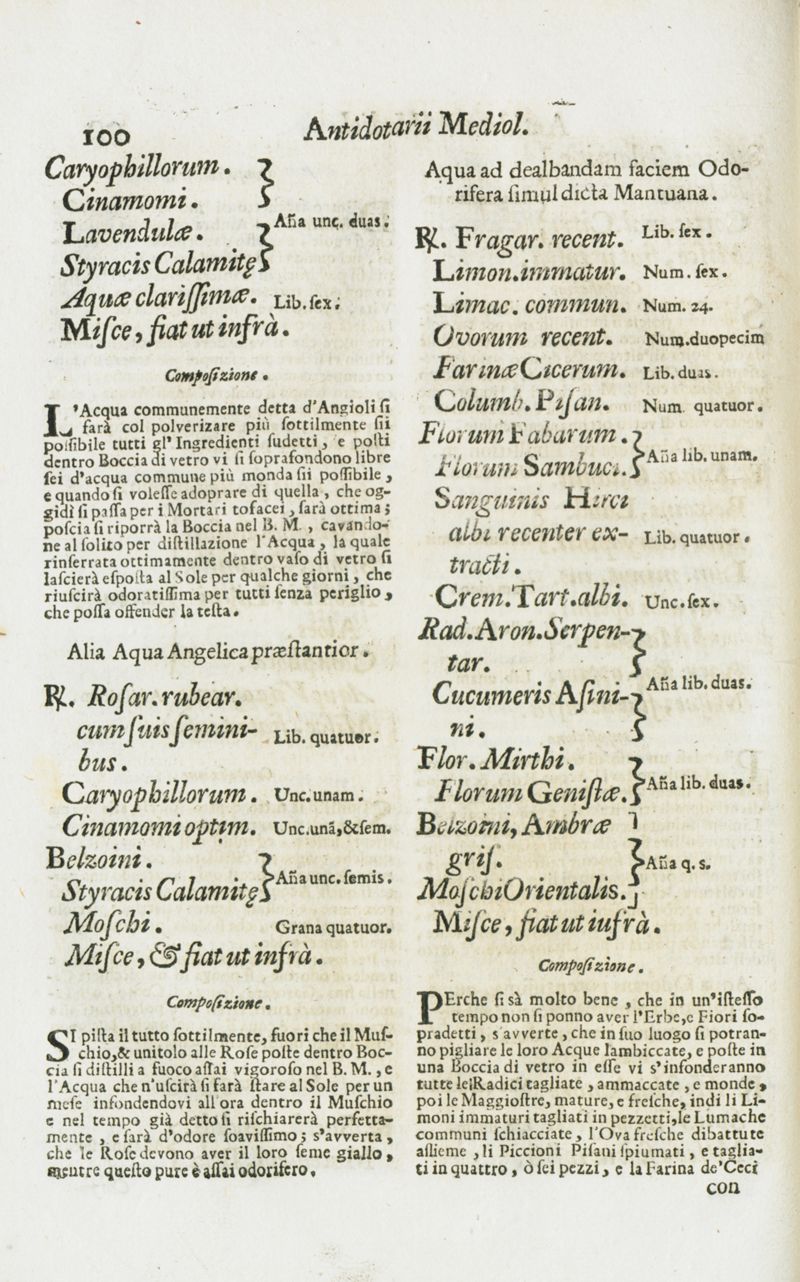 100
Antidotarii Mediol.
Caryophillorum.
Cinamomi.
Lavendulæ. Aña unc. duas.
Styracis Calamitę
Aquæ clarissimæ. Lib. sex.
Misce, fiat ut infrà.
Composizione.
L'Acqua communemente detta d'Angioli si
farà col polverizare più sottilmente sii
possibile tutti gl'Ingredienti sudetti, e posti
dentro Boccia di vetro vi si soprafondono libre
sei d'acqua commune più monda sii possibile,
e quando si volesse adoprare di quella, che og-
gidì si passa per i Mortari tofacei, sarà ottima;
poscia si riporrà la Boccia nel B. M., cavando-
ne al solito per distillazione l'Acqua, la quale
rinserrata ottimamente dentro vaso di vetro si
lascierà esposta al Sole per qualche giorni, che
riuscirà odoratissima per tutti senza periglio,
che possa offender la testa.
Alia Aqua Angelica præstantior.
℞. Rosar. rubear.
cum suis femini- Lib. quatuor.
bus.
Caryophillorum. Unc. unam.
Cinamomi optim. Unc. unā, & sem.
Belzoini.
Styracis Calamitę Aña unc. semis.
Moschi. Grana quatuor.
Misce, & fiat ut infrà.
Composizione.
SI pista il tutto sottilmente, fuori che il Mus-
chio, & unitolo alle Rose poste dentro Boc-
cia si distilli a fuoco assai vigoroso nel B. M., e
l'Acqua che n'uscirà si farà stare al Sole per un
mese infondendovi all'ora dentro il Muschio
e nel tempo già detto si rischiarerà perfetta-
mente, e sarà d'odore soavissimo; s'avverta,
che le Rose devono aver il loro seme giallo,
mentre questo pure è assai odorifero.
Aqua ad dealbandam faciem Odo-
rifera simul dicta Mantuana.
℞. Fragar. recent. Lib. sex.
Limon. immatur. Num. sex.
Limac. commun. Num. 24.
Ovorum recent. Num. duopecim
Farinæ Cicerum. Lib. duas.
Columb. Pisan. Num. quatuor.
Florum Fabarum.
Florum Sambuci. Aña lib. unam.
Sanguinis Hirci
albi recenter ex- Lib. quatuor.
tracti.
Crem. Tart. albi. Unc. sex.
Rad. Aron. Serpen-
tar.
Cucumeris Asini- Aña lib. duas.
ni.
Flor. Mirthi.
Florum Genistæ. Aña lib. duas.
Belzoini, Ambræ
gris. Aña q. s.
Moschi Orientalis.
Misce, fiat ut iufrà.
Composizione.
PErche si sà molto bene, che in un'istesso
tempo non si ponno aver l'Erbe, e Fiori so-
pradetti, s'avverte, che in suo luogo si potran-
no pigliare le loro Acque lambiccate, e poste in
una Boccia di vetro in esse vi s'infonderanno
tutte le Radici tagliate, ammaccate, e monde,
poi le Maggiostre, mature, e fresche, indi li Li-
moni immaturi tagliati in pezzetti, le Lumache
communi schiacciate, l'Ova fresche dibattute
assieme, li Piccioni Pisani spiumati, e taglia-
ti in quattro, ò sei pezzi, e la Farina de'Ceci
con